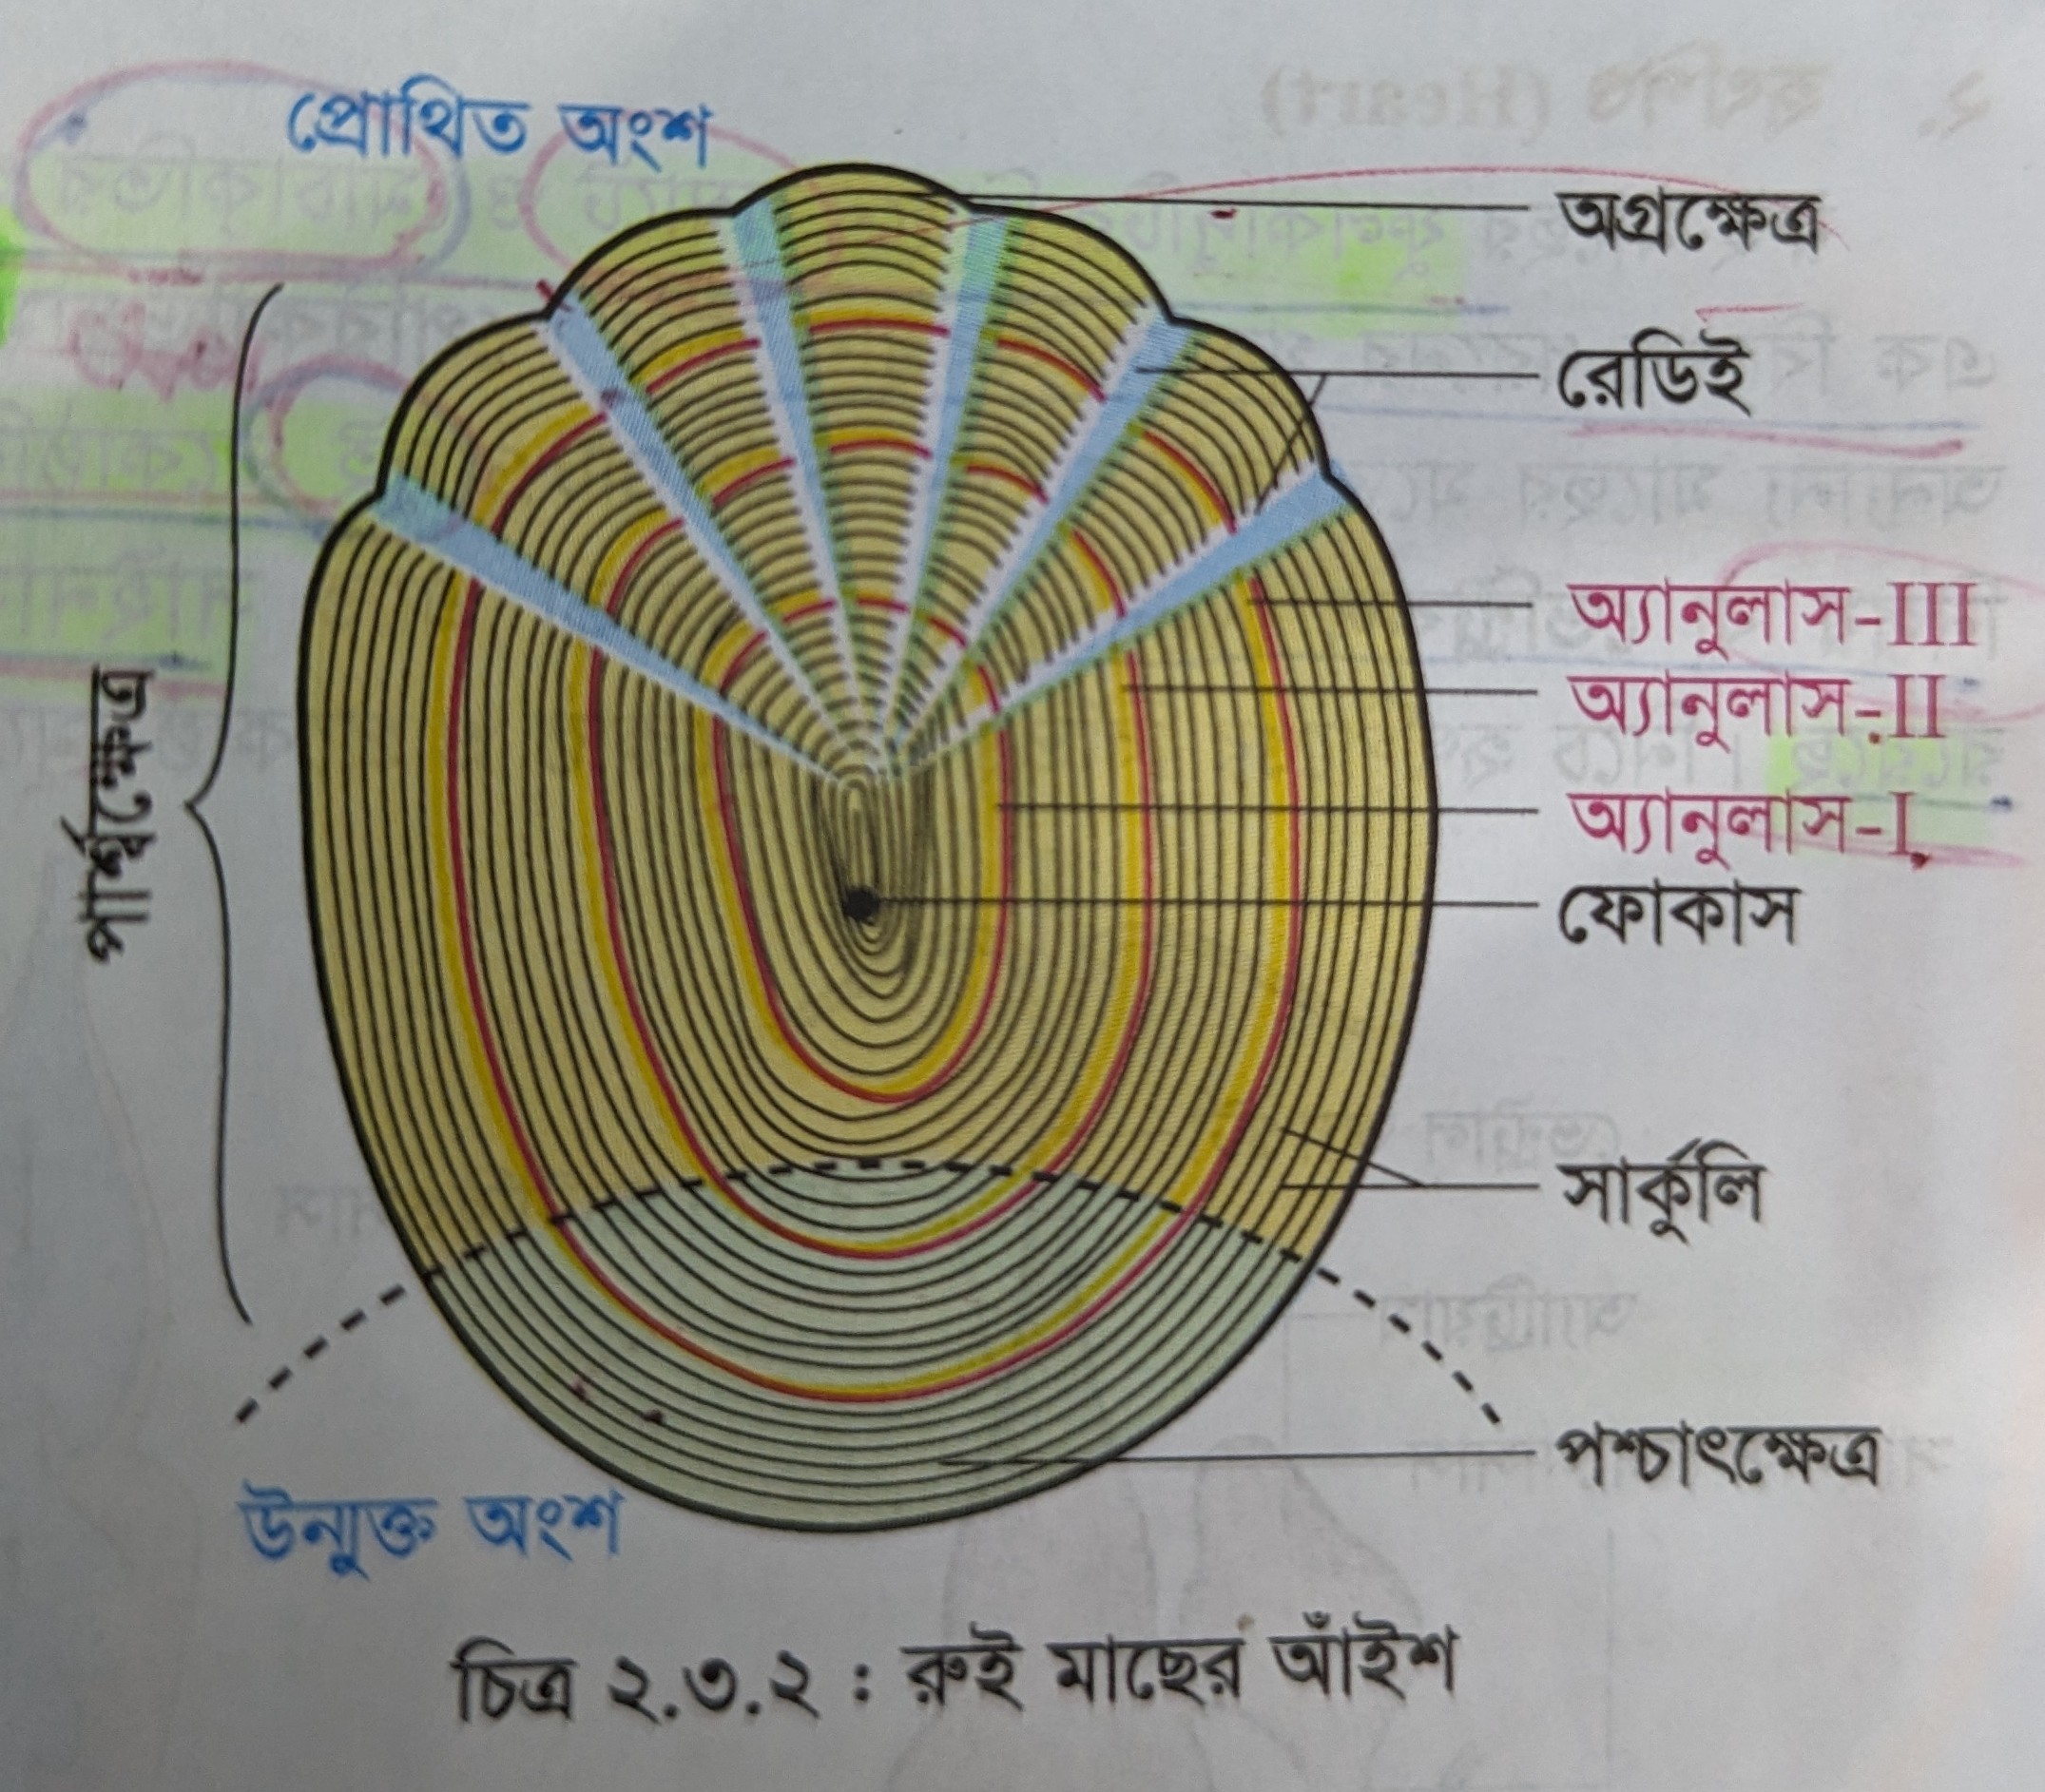 প্রোথিত অংশ
অগ্রক্ষেত্র
রেডিই
অ্যানুলাস-III
অ্যানুলাস-II
অ্যানুলাস-I
ফোকাস
পার্শ্বক্ষেত্র
সার্কুলি
পশ্চাৎক্ষেত্র
উন্মুক্ত অংশ
চিত্র ২.৩.২ : রুই মাছের আঁইশ